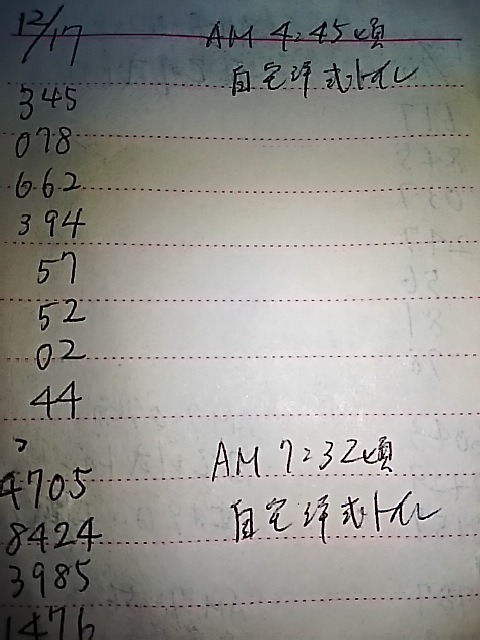 12/17 AM 4:45頃
自宅洋式トイレ
345
078
662
394
57
52
02
44
AM 7:32頃
4705
自宅洋式トイレ
8424
3985
1476